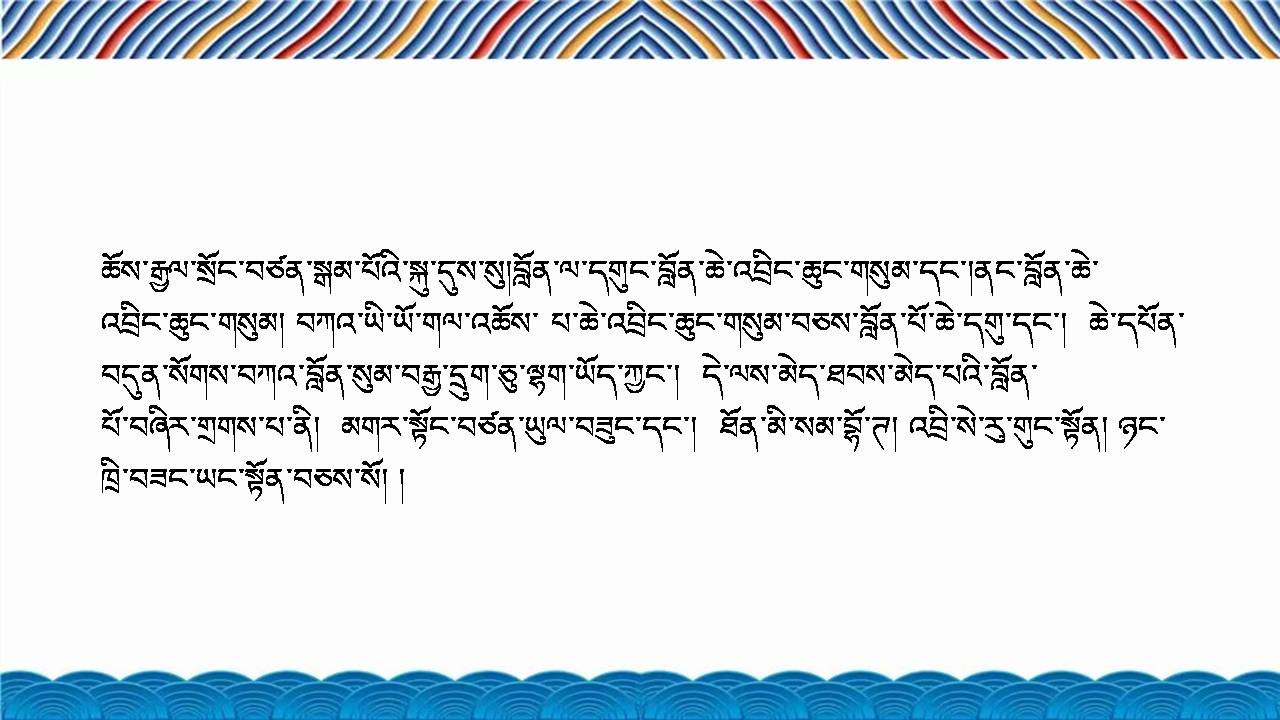 ཆོས་རྒྱལ་སྲོང་བཙན་སྒམ་པོའི་སྐུ་དུས་སུ།བློན་ལ་དགུང་བློན་ཆེ་འབྲིང་ཆུང་གསུམ་དང་།ནང་བློན་ཆེ་
འབྲིང་ཆུང་གསུམ། བཀའ་ཡི་ཡོ་གལ་འཆོས་ པ་ཆེ་འབྲིང་ཆུང་གསུམ་བཅས་བློན་པོ་ཆེ་དགུ་དང་། ཆེ་དཔོན་
བདུན་སོགས་བཀའ་བློན་སུམ་བརྒྱ་དྲུག་ཅུ་ལྷག་ཡོད་ཀྱང་། དེ་ལས་མེད་ཐབས་མེད་པའི་བློན་
པོ་བཞིར་གྲགས་པ་ནི། མགར་སྟོང་བཙན་ཡུལ་བཟུང་དང་། ཐོན་མི་སམ་བྷོ་ཊ། འབྲི་སེ་རུ་གུང་སྟོན། ཉང་
ཁྲི་བཟང་ཡང་སྟོན་བཅས་སོ། །